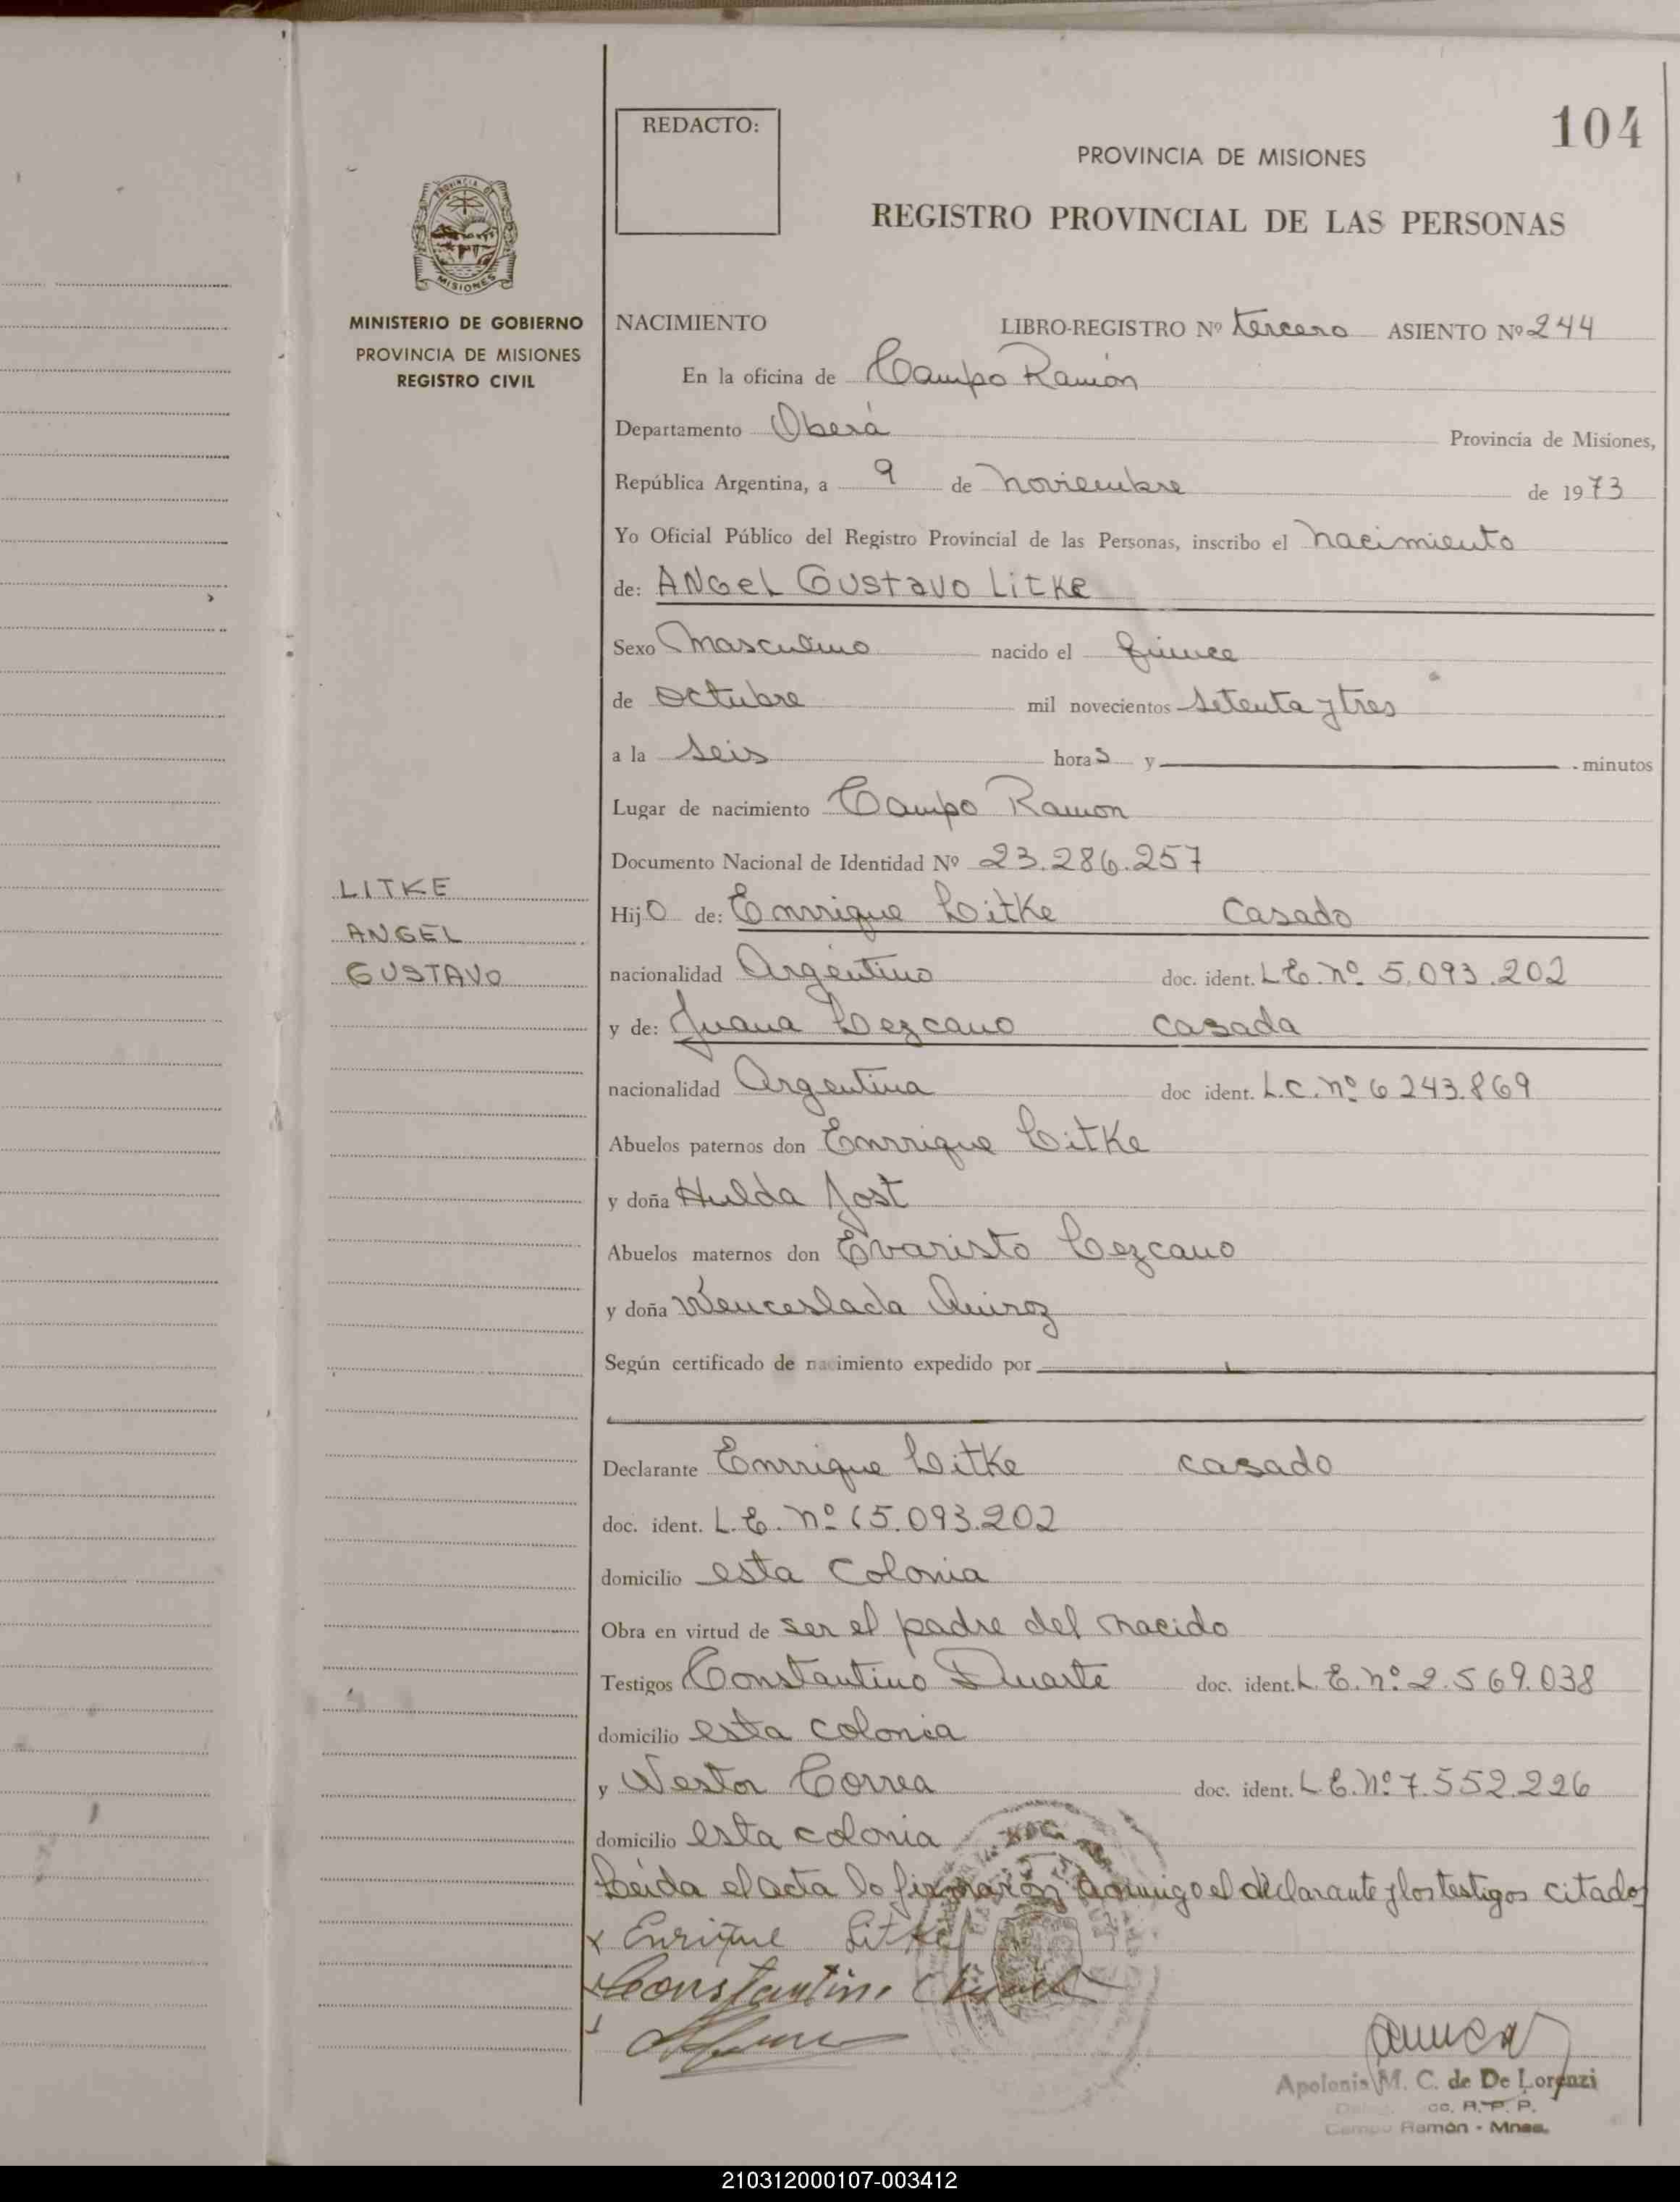 104
REDACTO:
PROVINCIA DE MISIONES
REGISTRO PROVINCIAL DE LAS PERSONAS
PROVINCIA DE
MISIONES
MINISTERIO DE GOBIERNO
PROVINCIA DE MISIONES
REGISTRO CIVIL
NACIMIENTO LIBRO-REGISTRO Nº tercero ASIENTO Nº 244
En la oficina de Campo Ramón
Departamento Oberá Provincia de Misiones,
República Argentina, a 9 de noviembre de 1973
Yo Oficial Público del Registro Provincial de las Personas, inscribo el nacimiento
de: ANGEL GUSTAVO LITKE
Sexo Masculino nacido el quince
de octubre mil novecientos setenta y tres
a la seis horas y minutos
Lugar de nacimiento Campo Ramon
Documento Nacional de Identidad Nº 23.286.257
LITKE
ANGEL
GUSTAVO
Hijo de: Enrrique Litke Casado
nacionalidad Argentino doc. ident. L E. nº 5.093.202
y de: Juana Lezcano casada
nacionalidad Argentina doc ident. L.C. nº 6 243.869
Abuelos paternos don Enrrique Litke
y doña Hulda Jost
Abuelos maternos don Evaristo Lezcano
y doña Wenceslada Quiroz
Según certificado de nacimiento expedido por
Declarante Enrrique Litke casado
doc. ident. L.E. nº 5.093.202
domicilio esta colonia
Obra en virtud de ser el padre del nacido
Testigos Constantino Duarte doc. ident. L. E. nº 2.569.038
domicilio esta colonia
y Nestor Correa doc. ident. L E. Nº 7.552.226
domicilio esta colonia
Leida el acta lo firmaron conmigo el declarante y los testigos citados
x Enrique Litke
Constantino
Apolonia M. C. de De Lorenzi
R. P. P.
Campo Ramón - Mnes.
210312000107-003412